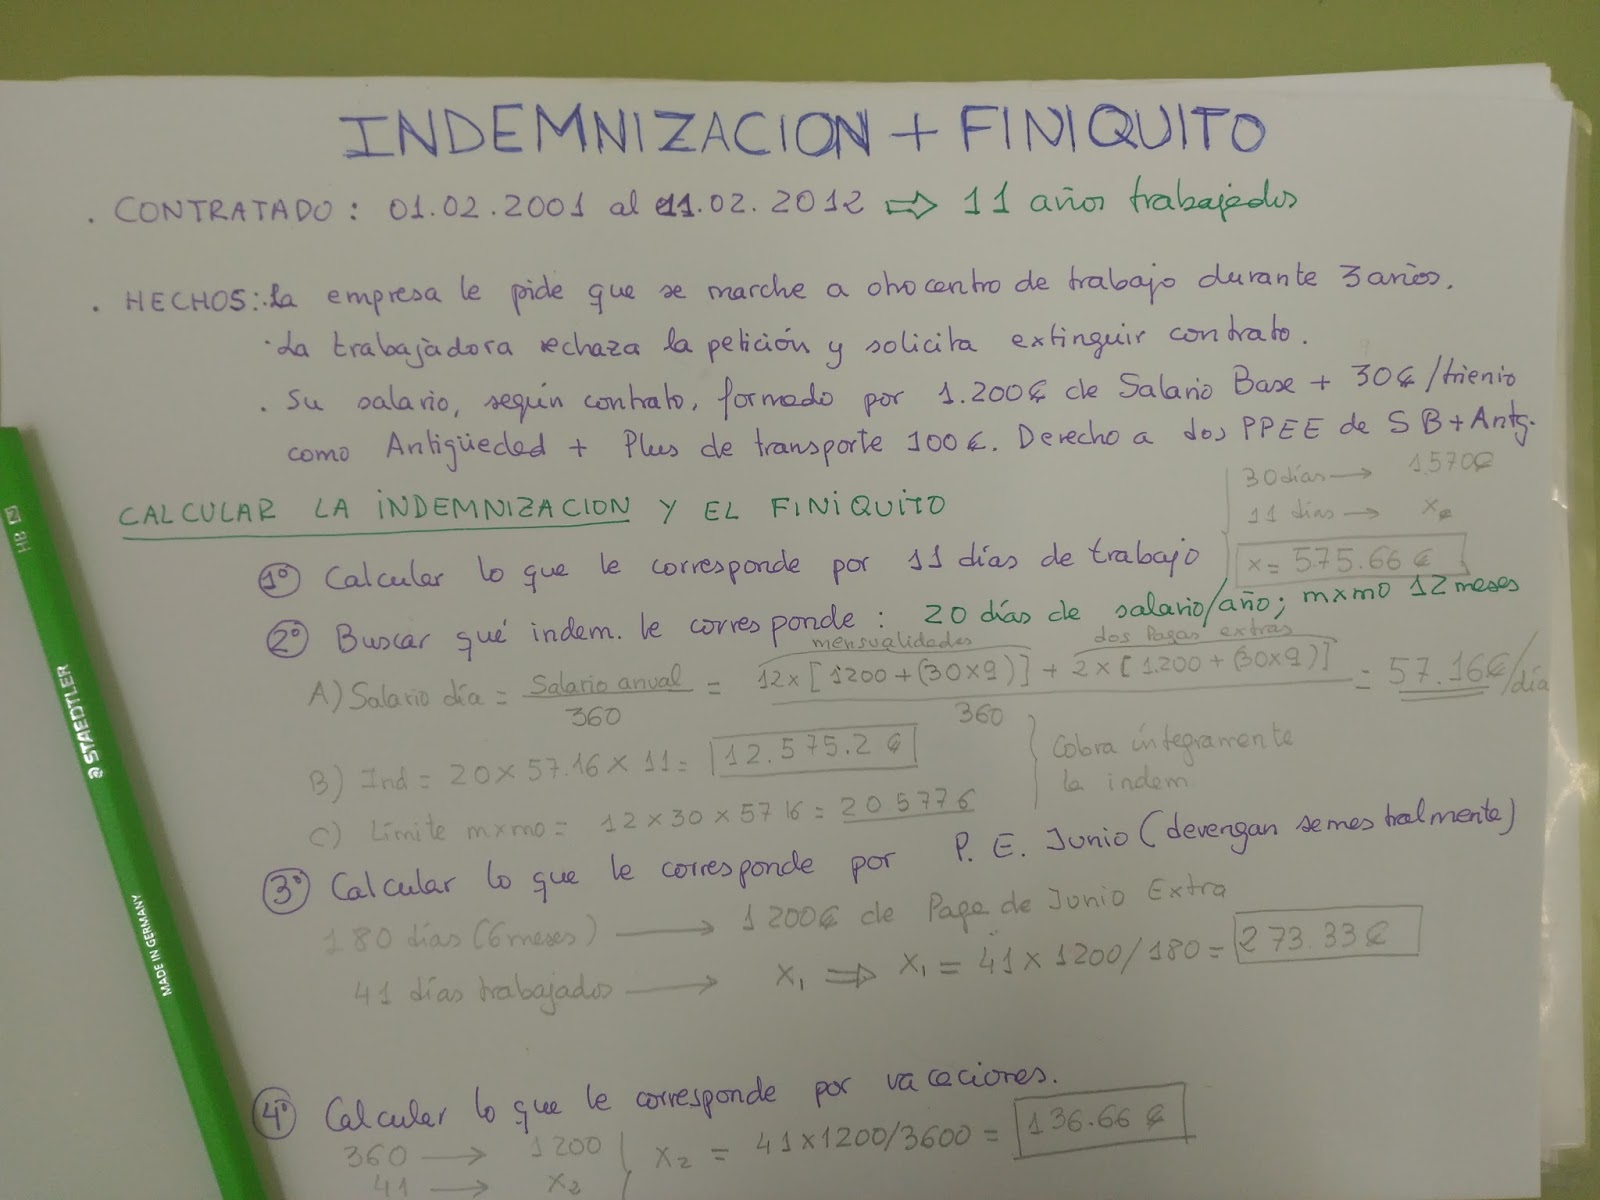 INDEMNIZACION + FINIQUITO
. CONTRATADO: 01.02.2001 al 11.02.2012 ⇨ 11 años trabajados
. HECHOS: · La empresa le pide que se marche a otro centro de trabajo durante 3 años.
· La trabajadora rechaza la petición y solicita extinguir contrato.
. Su salario, según contrato, formado por 1.200€ de Salario Base + 30€/trienio
como Antigüedad + Plus de transporte 100€. Derecho a dos PPEE de SB+Antg.
30 días → 1.570€
11 días → x€
x = 575.66 €
CALCULAR LA INDEMNIZACION Y EL FINIQUITO
1º Calcular lo que le corresponde por 11 días de trabajo
2º Buscar qué indem. le corresponde: 20 días de salario/año; mxmo 12 meses
mensualidades dos Pagas extras
A) Salario día = Salario anual / 360 = 12x[1200+(30x9)] + 2x[1.200+(30x9)] / 360 = 57.16€/día
B) Ind = 20x57.16x11= 12.575.2 €
C) Límite mxmo = 12x30x57 16 = 20 577 €
Cobra íntegramente
la indem
3º Calcular lo que le corresponde por P. E. Junio (devengan semestralmente)
180 días (6 meses) → 1200€ de Paga de Junio Extra
41 días trabajados → x₁ ⇒ x₁ = 41x1200/180 = 273.33€
4º Calcular lo que le corresponde por vacaciones.
360 → 1200
41 → x₂
x₂ = 41x1200/3600 = 136.66 €
STAEDTLER
MADE IN GERMANY
HB 2